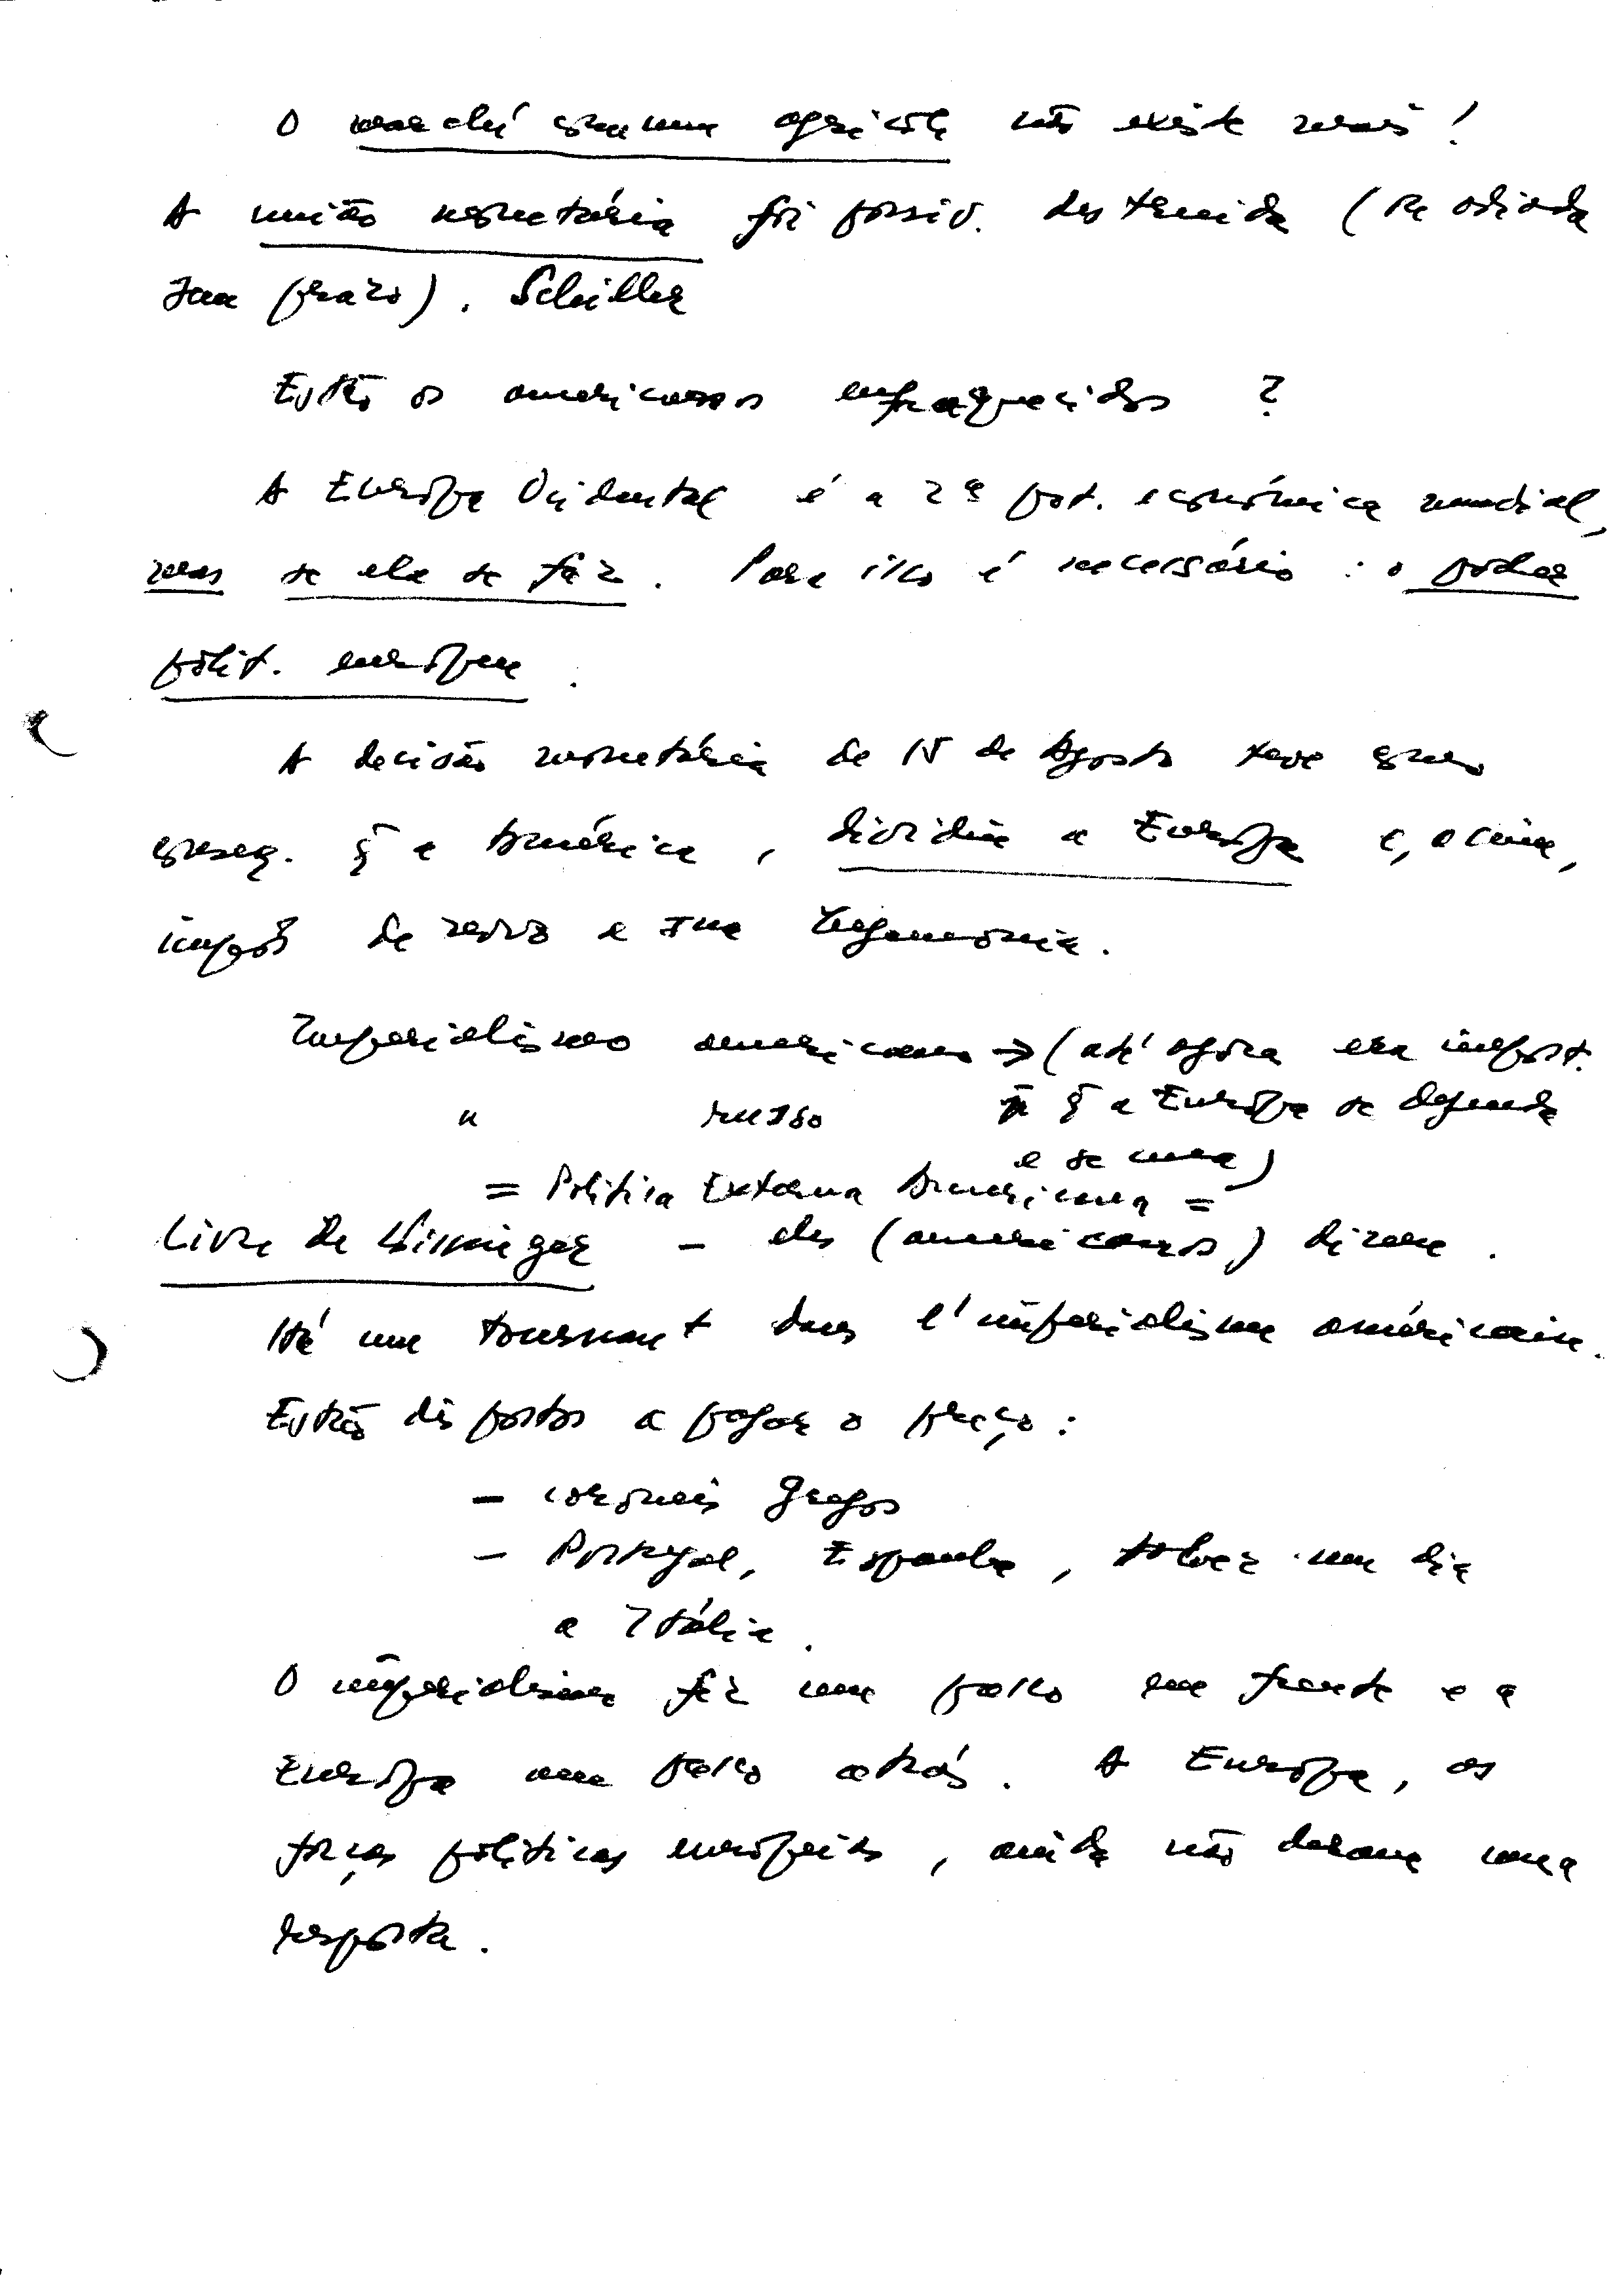 O marché commun agricole não existe mais!
A união monetária foi possiv. destruida (re adiada
sem prazo). Schiller
Estão os americanos enfraquecidos ?
A Europa Ocidental é a 2ª pot. económica mundial,
mas se ela se faz. Para isso é necessário : o poder
polit. europeu.
A decisão monetária de 15 de Agosto teve como
conseq. q̃ a América, dividiu a Europa e, acima,
impôs de novo a sua hegemonia.
Imperialismo americano → (até agora era import.
" russo q̃ a Europa se defenda
e se una)
= Politica Externa Americana =
Livre de Kissinger - eles (americanos) dizem.
Há um tournant dans l'impérialisme américain.
Estão dispostos a pagar o preço :
- coroneis gregos
- Portugal, Espanha, talvez um dia
a Itália.
O imperialismo fez um passo em frente e a
Europa um passo atrás. A Europa, as
forças politicas europeias, ainda não deram uma
resposta.